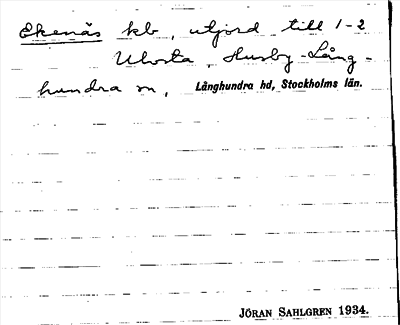 Ekenäs kb, utjord till 1-2
Ulvsta, Husby-Lång-
hundra sn, Långhundra hd, Stockholms län.
JÖRAN SAHLGREN 1934.